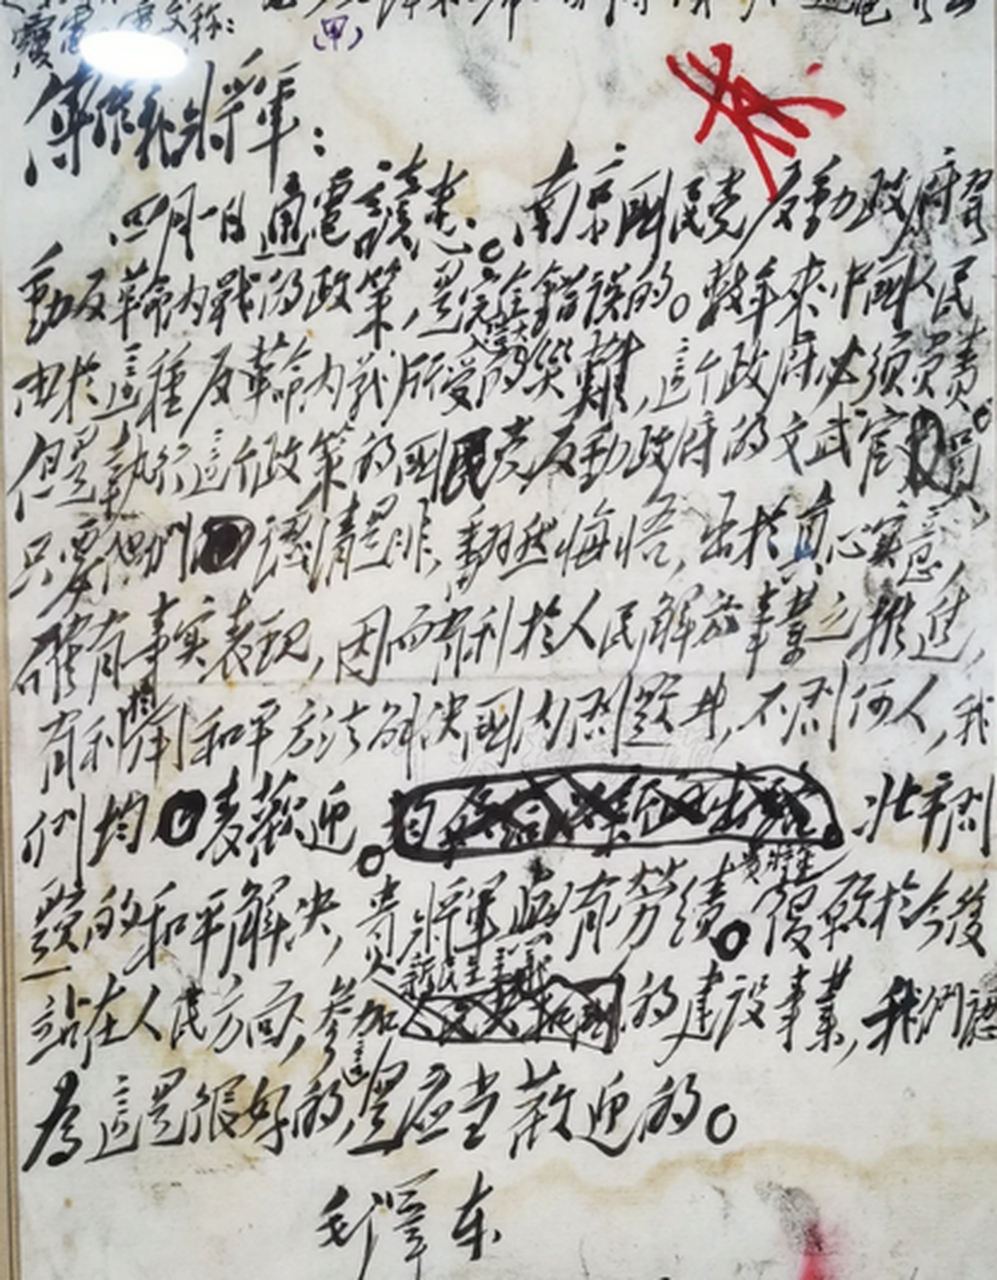 電文称：
（甲）
傅作義將軍：
四月一日通電讀悉。南京國民党反動政府發
動反革命内戰的政策，是完全錯誤的。數年來中國人民
由於這種反革命内战所受的巨大災難，這个政府必須負責。
但是執行這个政策的國民党反動政府的文武官員，
只要他們認清是非，翻然悔悟，出於真心實意，
確有事实表現，因而有利於人民解放事業之推進，
有利於用和平方法解決國内问題者，不问何人，我
们均表歡迎。北平问
題的和平解決，貴將軍與有勞績。貴將軍復願於今後
站在人民方面，參加新民主主義的建設事業，我們認
為這是很好的，這是应当歡迎的。
毛澤东